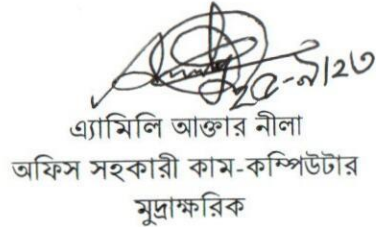 এ্যামিলি আক্তার নীলা
অফিস সহকারী কাম-কম্পিউটার
মুদ্রাক্ষরিক